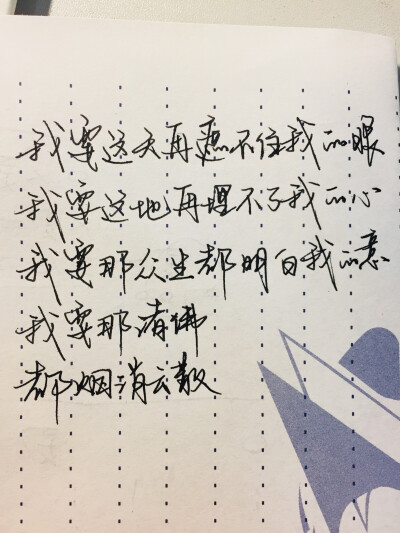 我要这天再遮不住我的眼
我要这地再埋不了我的心
我要那众生都明白我的意
我要那诸佛
都烟消云散